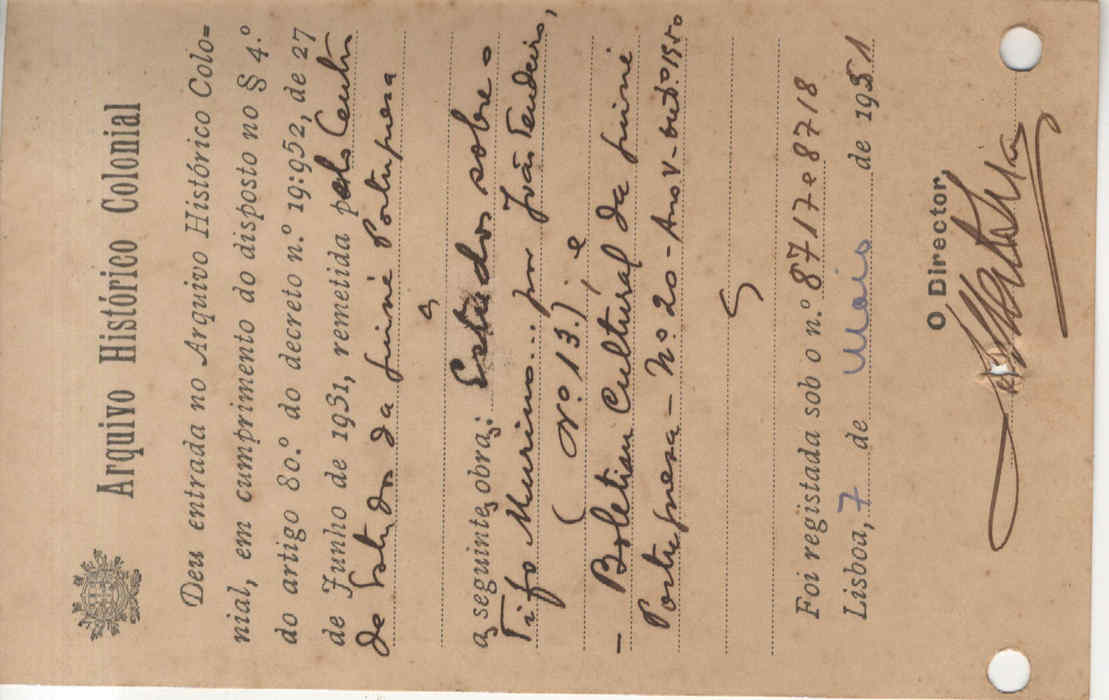 Arquivo Histórico Colonial
Deu entrada no Arquivo Histórico Colo=
nial, em cumprimento do disposto no § 4.º
do artigo 80.º do decreto n.º 19:952, de 27
de Junho de 1931, remetida pelo Centro
de Estudos da Guiné Portuguesa
as seguintes obras: Estudos sobre o
Tifo Murino... por João Tendeiro,
(N.º 13.); e
- Boletim Cultural da Guiné
Portuguesa - Nº 20 - Ano V - Outº. 1950
Foi registada sob o n.º 8717 e 8718
Lisboa, 7 de Maio de 1951
O Director,